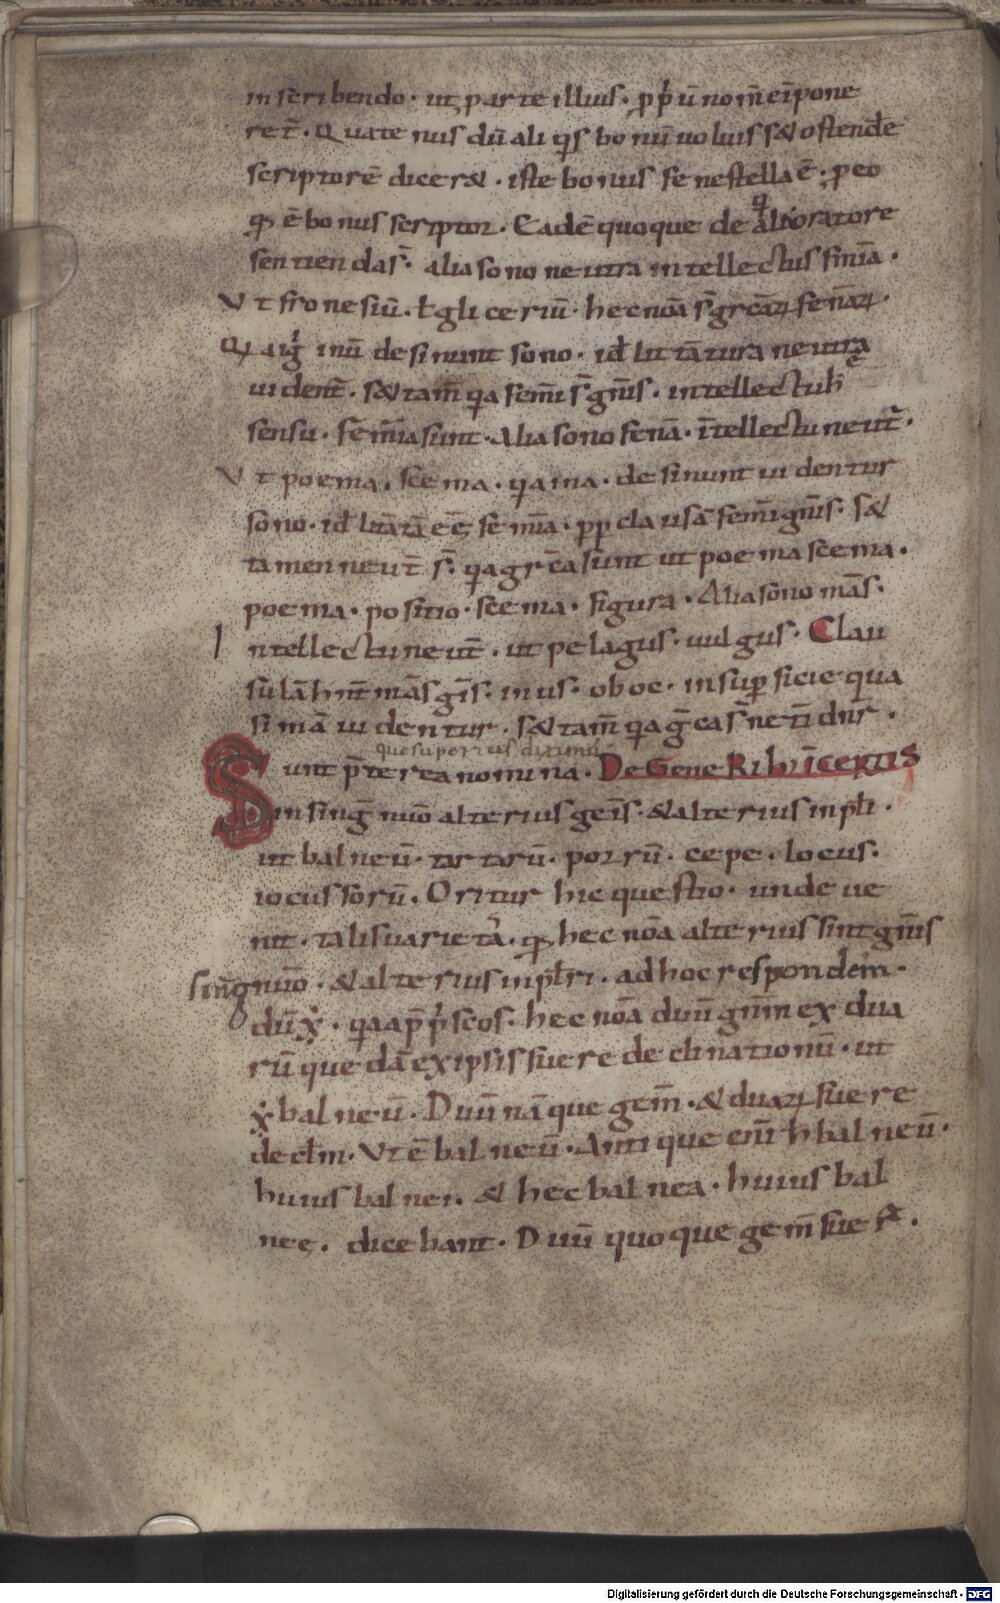 in scribendo · ut parte illius · pp̄ū nom̄ ēīpone
ret̄ · Quate nus dū ali q̄s bonū uoluis s& ostend̄e
scriptorē dicer& · iste bonus fenestella ē · peo
q̄ ē bonus scriptor · Eadē quoque de alio oratore
sentiendas̄ · alia sono neutra intellectus finīa ·
Ut fronesiū · ł gliceriū · hec nōa s̄ grēcaꝝ fenāꝝ ·
Q aiḡ inū desinunt sono · id̄ lit tātura neutra
uident̄ · s& tam̄ q̄a fem̄i s̄ ḡnīs · intellectuħ
sensu · fem̄īa sunt · Alia sono fenā · ītellectu neut̄ ·
Ut poema · scema · q̄a ina · desinunt uidentur
sono · id̄ litātā eē femīa · pp clausā fem̄ignīs · s&
tamen neut̄ s̄ · q̄a grēca sunt ut poema scema ·
poema · positio · scema · figura · Alia sono mās ·
Intellectu neut̄ · ut pelagus · uulgus · Clau
sulā hn̄t mās gīs · in us · ob oc · in supficie qua
si mā uidentur · s& tam̄ q̄a ḡca s̄ netī dnr̄ ·
que superius diximus
Sunt p̄terea nomina · De GeneRib īceRtis
in sinḡ nūo alterius geīs · & alterius in płi ·
ut balneū · tartarū · porrū · cepe · locus ·
iocus forū · Oritur hic questio · unde ue
nit · talis uarietā · q̄ hec nōa alterius sint gnīs
sinḡ nūo · & alterius in płri · ad hoc respondem̄ ·
dūẋ · q̄a ap̄ p̄scos · hec nōa duū gnīm ex dua
rū que dā ex ipsis fuere declinationū · ut
ẋ balneū · Duū nāque gem̄ · & duaꝝ fuere
decłm · Ut ē balneū · Antique enī ħ balneū ·
huius balnei · & hec balnea · huius bal
neę · dicebant · Duū quoque gem̄ fue r̄ ·
Digitalisierung gefördert durch die Deutsche Forschungsgemeinschaft - DFG